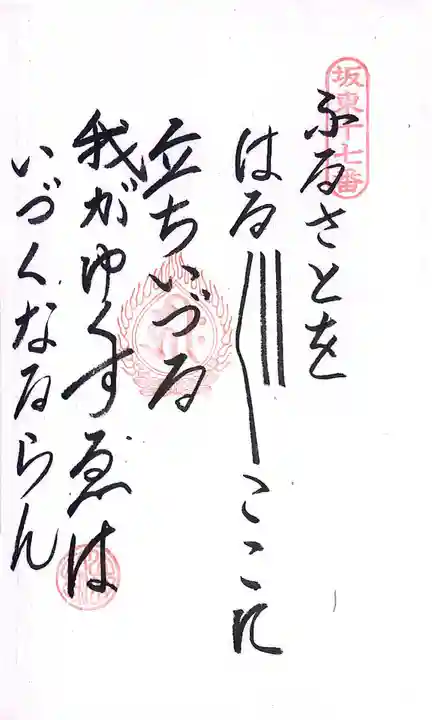 坂東十七番
ふるさとを
はる〲ここに
立ちいづる
我がゆくすゑは
いづくなるらん